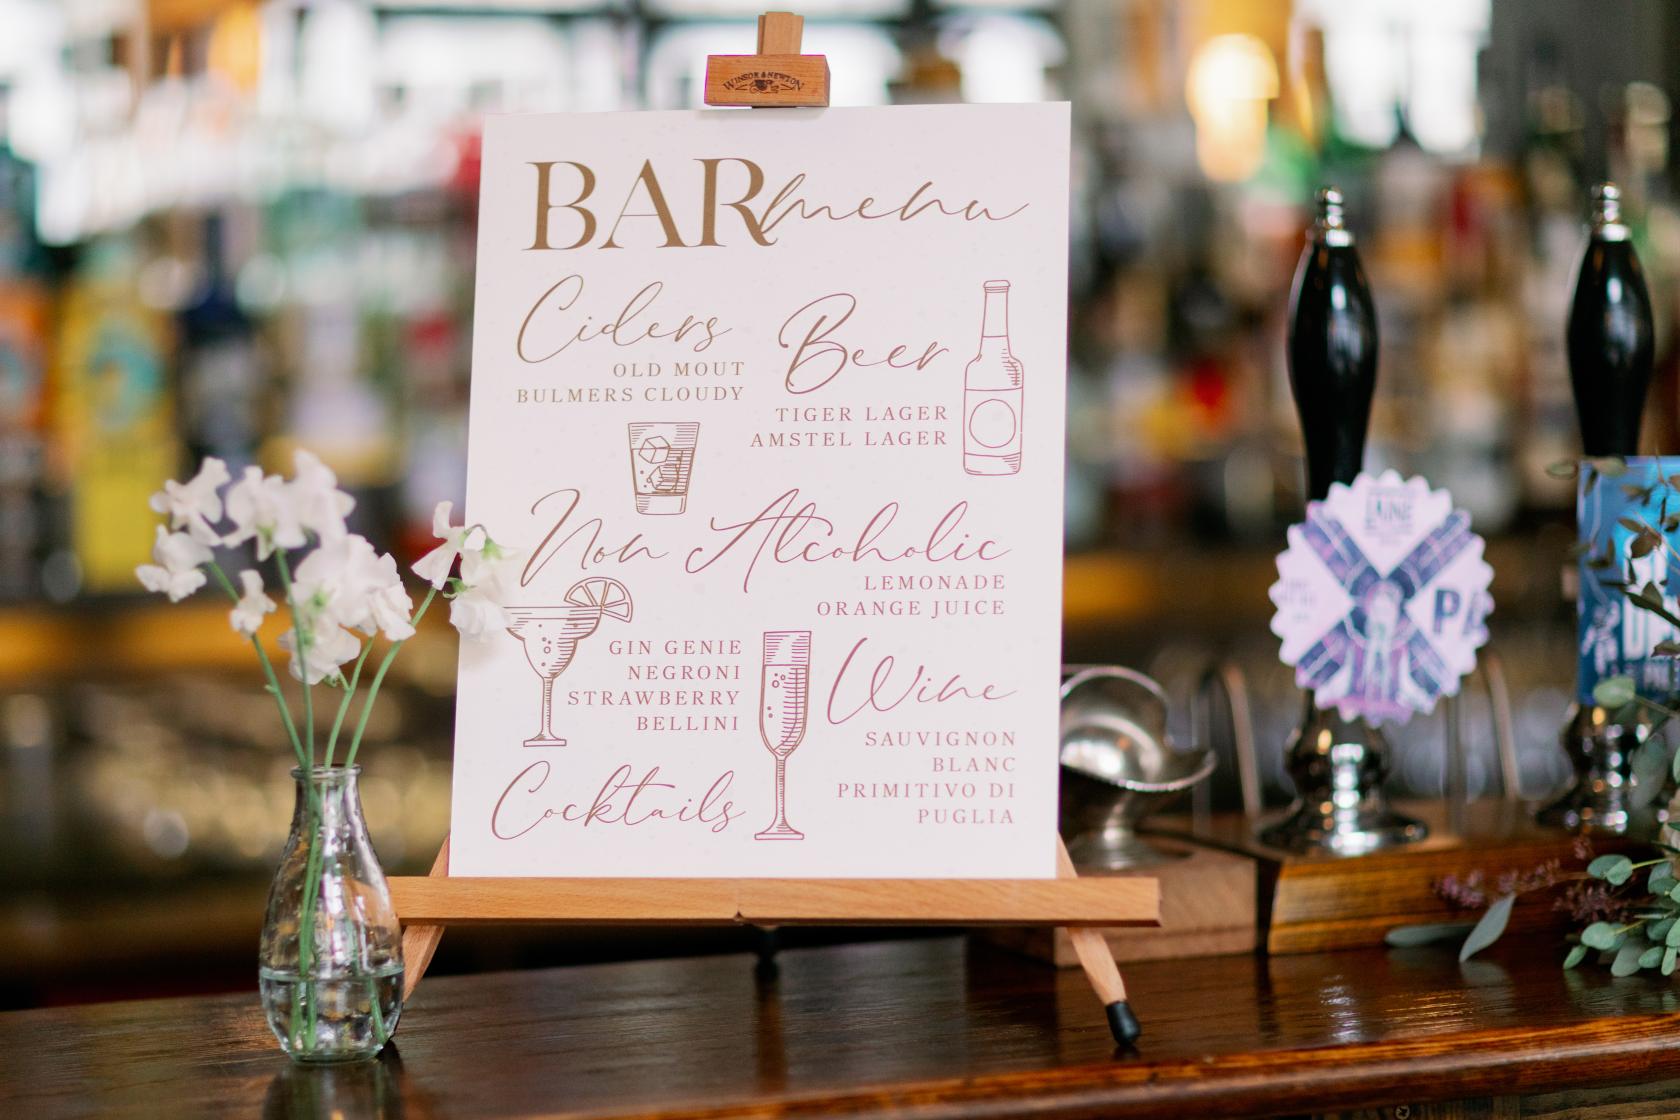 WINSOR & NEWTON
BAR menu
Ciders
OLD MOUT
BULMERS CLOUDY
Beer
TIGER LAGER
AMSTEL LAGER
Non Alcoholic
LEMONADE
ORANGE JUICE
GIN GENIE
NEGRONI
STRAWBERRY
BELLINI
Cocktails
Wine
SAUVIGNON
BLANC
PRIMITIVO DI
PUGLIA